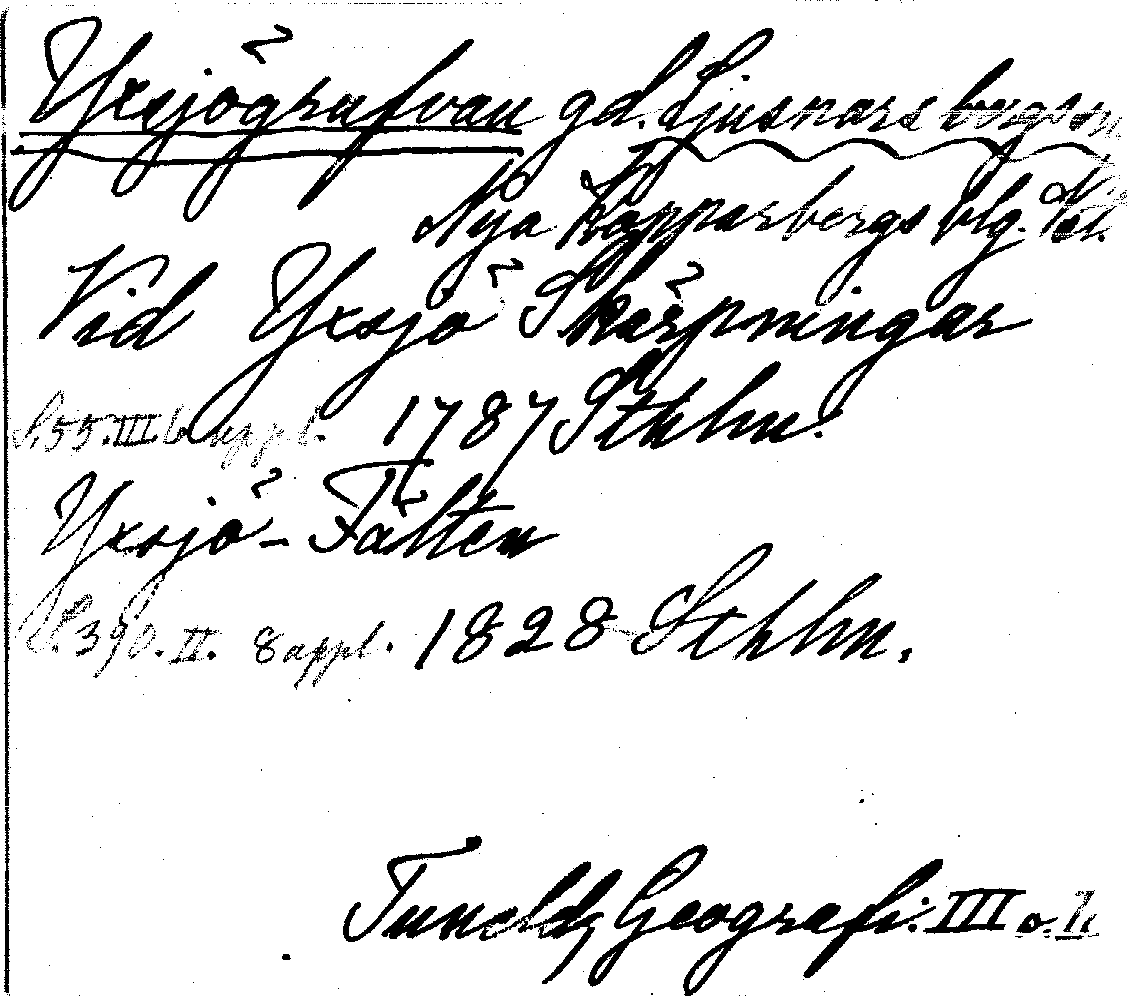 Yxsjögrafvan gd. Ljusnarsbergs sn
Nya Kopparbergs blg.
Vid Yxsjö Skärpningar
S. 55. III. 6 uppl. 1787 Sthlm.
Yxsjö-Fälten
S. 390. II. 8 uppl. 1828 Sthlm.
Tunelds Geografi. III o. II